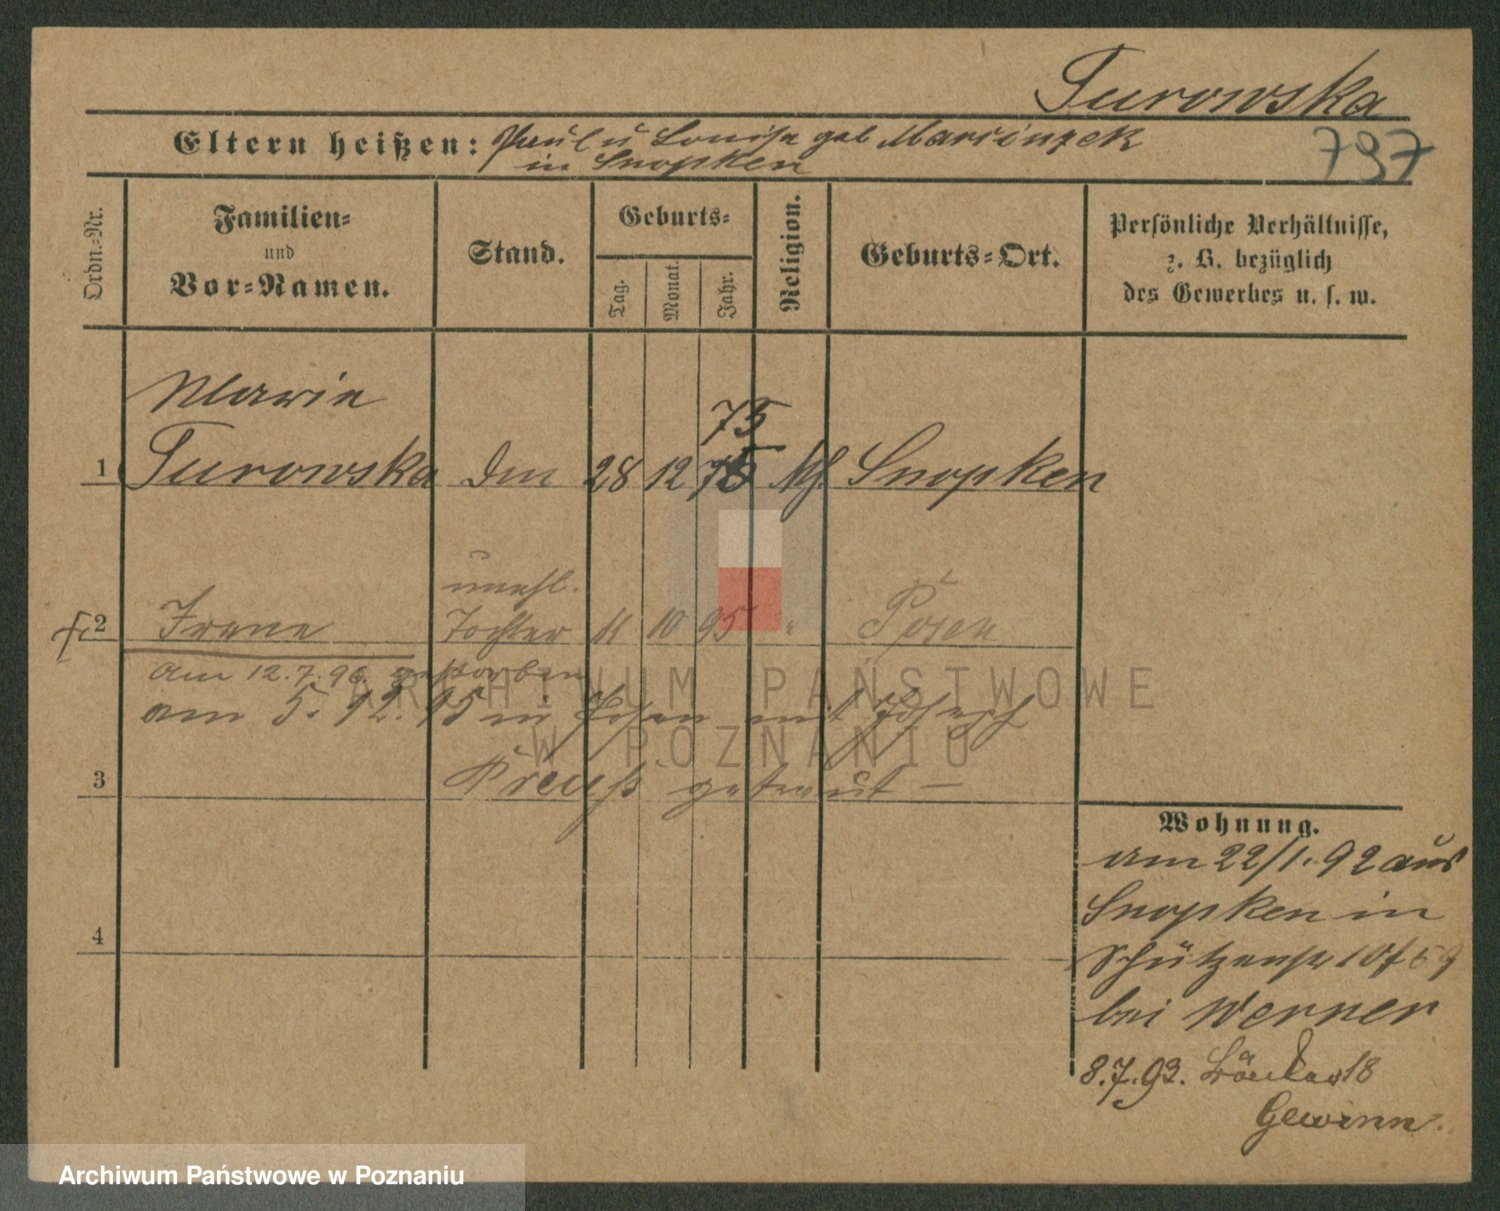 Turowska
Eltern heißen: Paul u Louise geb Marcinzek
in Snopken
797
Ordn.-Nr.
Familien-
und
Vor-Namen.
Stand.
Geburts-
Tag.
Monat.
Jahr.
Religion.
Geburts-Ort.
Persönliche Verhältnisse,
z. B. bezüglich
des Gewerbes u. s. w.
Marie
75
1 Turowska 28 12 75 Snopken
unehl.
2 Irene Tochter 11 10 95 " Posen
am 12.7.96. gestorben
am 5. 12. 95 in Posen mit Joseph
3 Preuß getraut –
4
Wohnung.
am 22/1. 92 aus
Snopken in
Schützenstr
bei Werner
8.7.93. 18
Gewinn.
ARCHIWUM PAŃSTWOWE
W POZNANIU
Archiwum Państwowe w Poznaniu